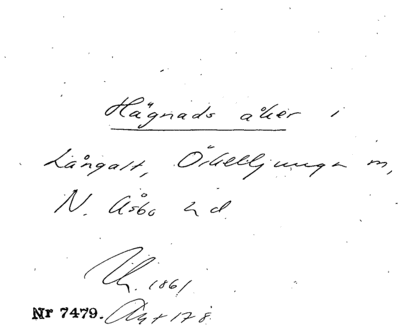 Hägnads åker i
Långalt, Örkelljunga m,
N. Åsbo hd
1861
Nr 7479.